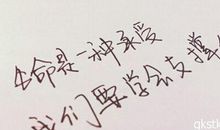 生命是一种承受
我们要学会支撑
qkstk